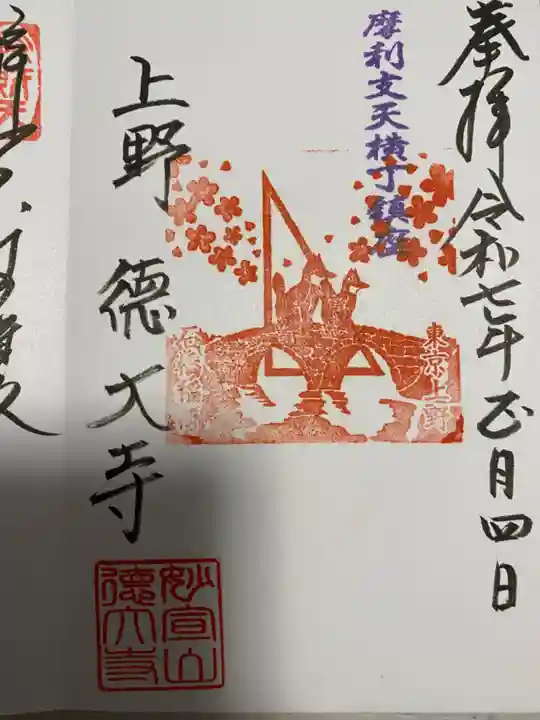 奉拝 令和七年正月四日
摩利支天横丁鎮座
東京上野
上野 徳大寺
妙宣山
徳大寺